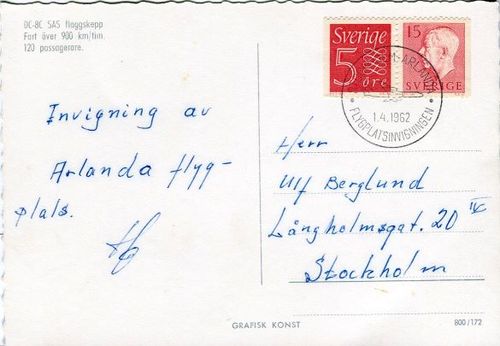 DC-8C SAS flaggskepp
Fart över 900 km/tim.
120 passagerare.
Sverige
5
öre
15
SVERIGE
M-ARLANDA
1.4.1962
FLYGPLATSINVIGNINGEN
Invigning av
Arlanda flyg-
plats.
Herr
Ulf Berglund
Långholmsgat. 20 IV
Stockholm
GRAFISK KONST
800/172